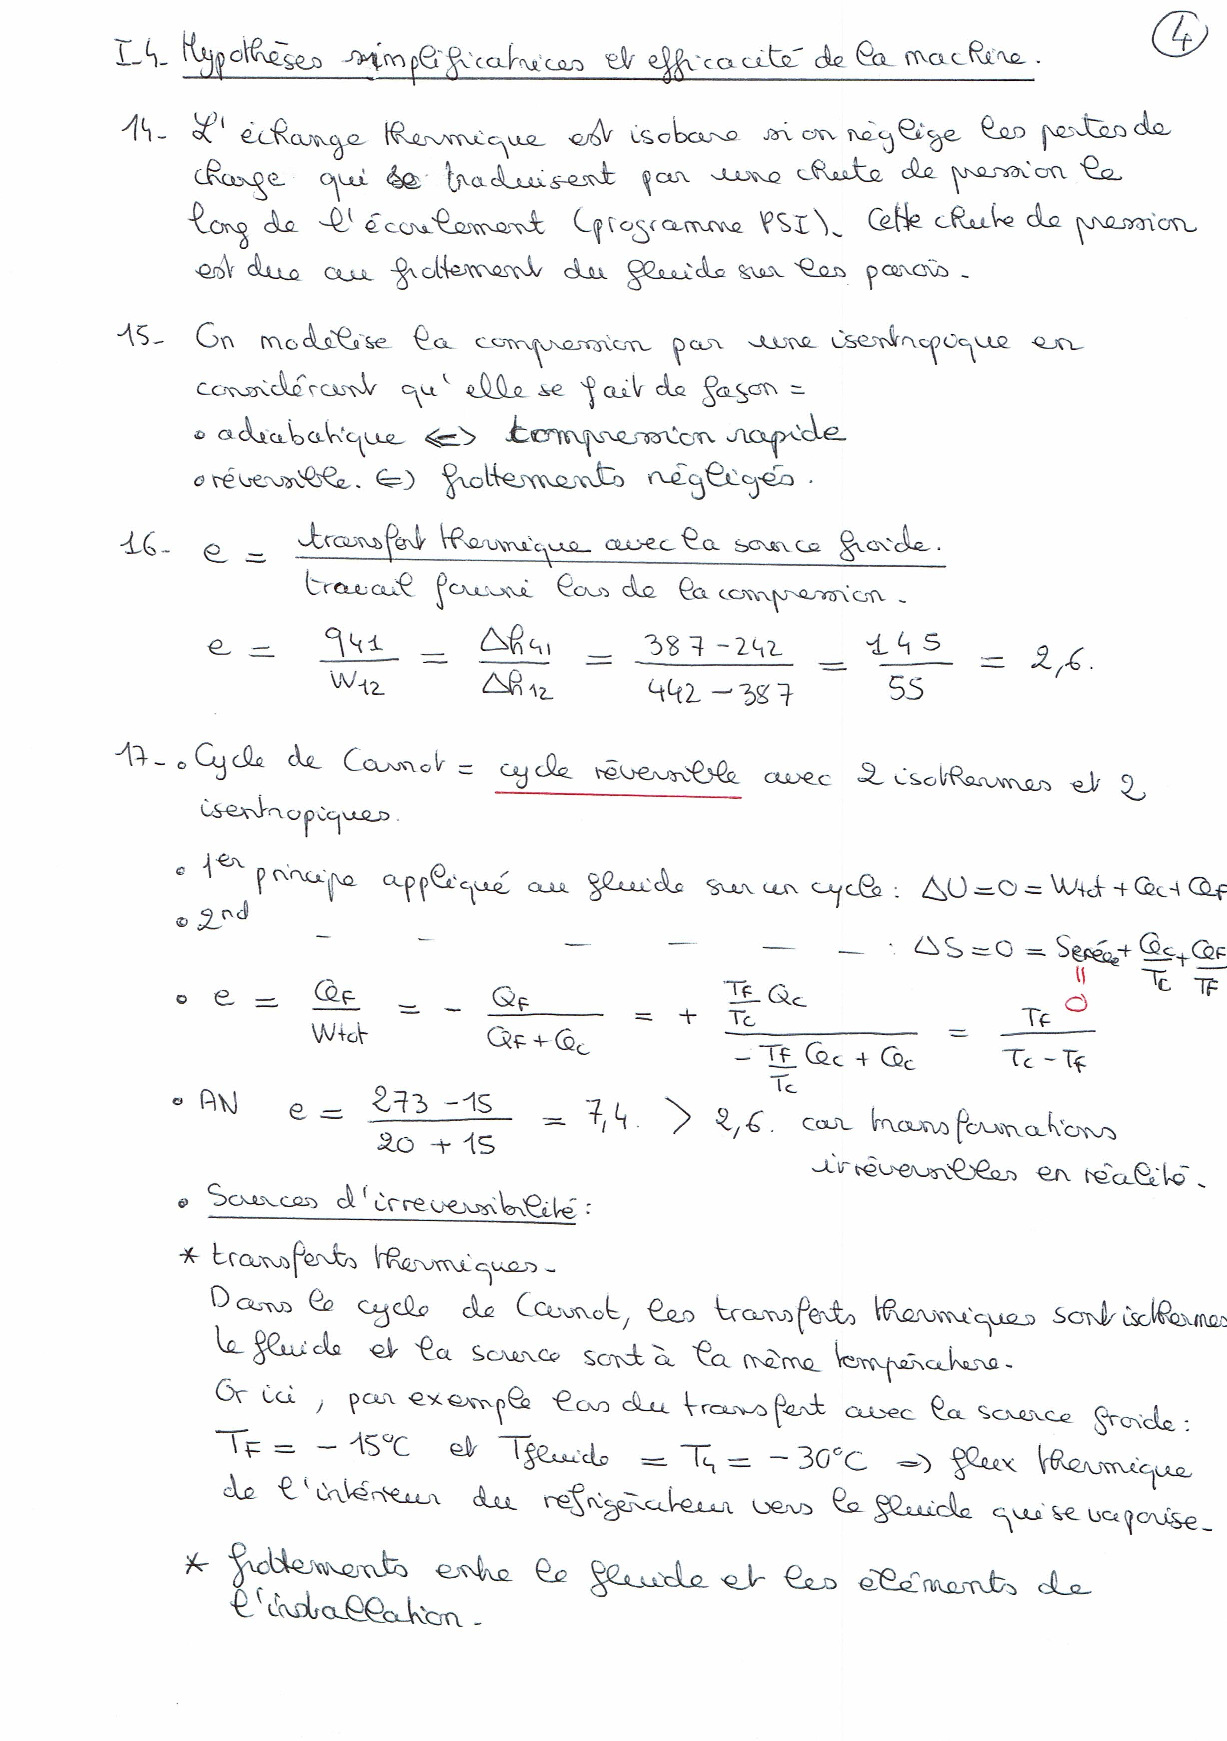 4
I.4. Hypothèses simplificatrices et efficacité de la machine.
14- L'échange thermique est isobare si on néglige les pertes de
charge qui se traduisent par une chute de pression le
long de l'écoulement (programme PSI). Cette chute de pression
est due au frottement du fluide sur les parois.
15- On modélise la compression par une isentropique en
considérant qu'elle se fait de façon =
• adiabatique <=> compression rapide
• réversible. <=> frottements négligés.
16- e = transfert thermique avec la source froide. / travail fourni lors de la compression.
e = q41 / w12 = Δh41 / Δh12 = 387-242 / 442-387 = 145 / 55 = 2,6.
17- • Cycle de Carnot = cycle réversible avec 2 isothermes et 2
isentropiques.
• 1er principe appliqué au fluide sur un cycle : ΔU = 0 = Wtot + Qc + QF
• 2nd - - - - - - : ΔS = 0 = Scréée + Qc/Tc + QF/TF
= 0
• e = QF / Wtot = - QF / (QF + Qc) = + (TF/Tc Qc) / (- TF/Tc Qc + Qc) = TF / (Tc - TF)
• AN e = 273-15 / 20+15 = 7,4. > 2,6. car transformations
irréversibles en réalité.
• Sources d'irreversibilité :
* transferts thermiques.
Dans le cycle de Carnot, les transferts thermiques sont isothermes
le fluide et la source sont à la même température.
Or ici, par exemple lors du transfert avec la source froide :
TF = -15°C et Tfluide = T4 = -30°C => flux thermique
de l'intérieur du refrigérateur vers le fluide qui se vaporise.
* frottements entre le fluide et les éléments de
l'installation.